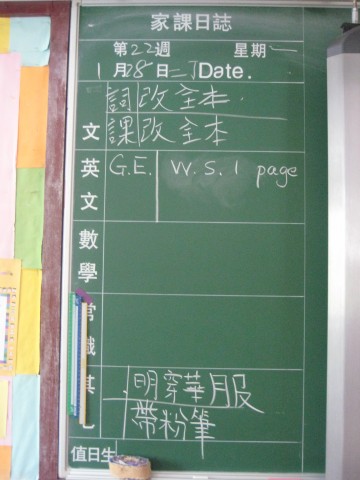 家課日誌
第22週 星期一
1月28日二丁Date.
詞 改全本.
文 課 改全本
英文 G.E. W.S. 1 page
數學
常識
其 .明穿華服
帶粉筆
值日生